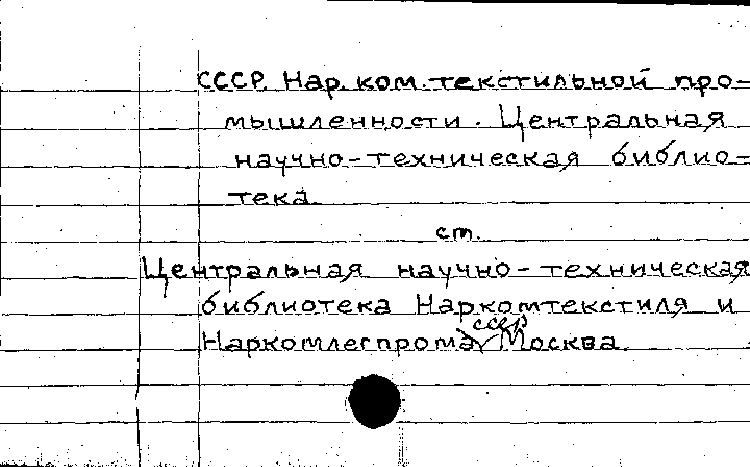 СССР. Нар. ком. текстильной про-
мышленности. Центральная
научно-техническая библио-
тека
см.
Центральная научно-техническая
библиотека Наркомтекстиля и
Наркомлегпрома СССР Москва.